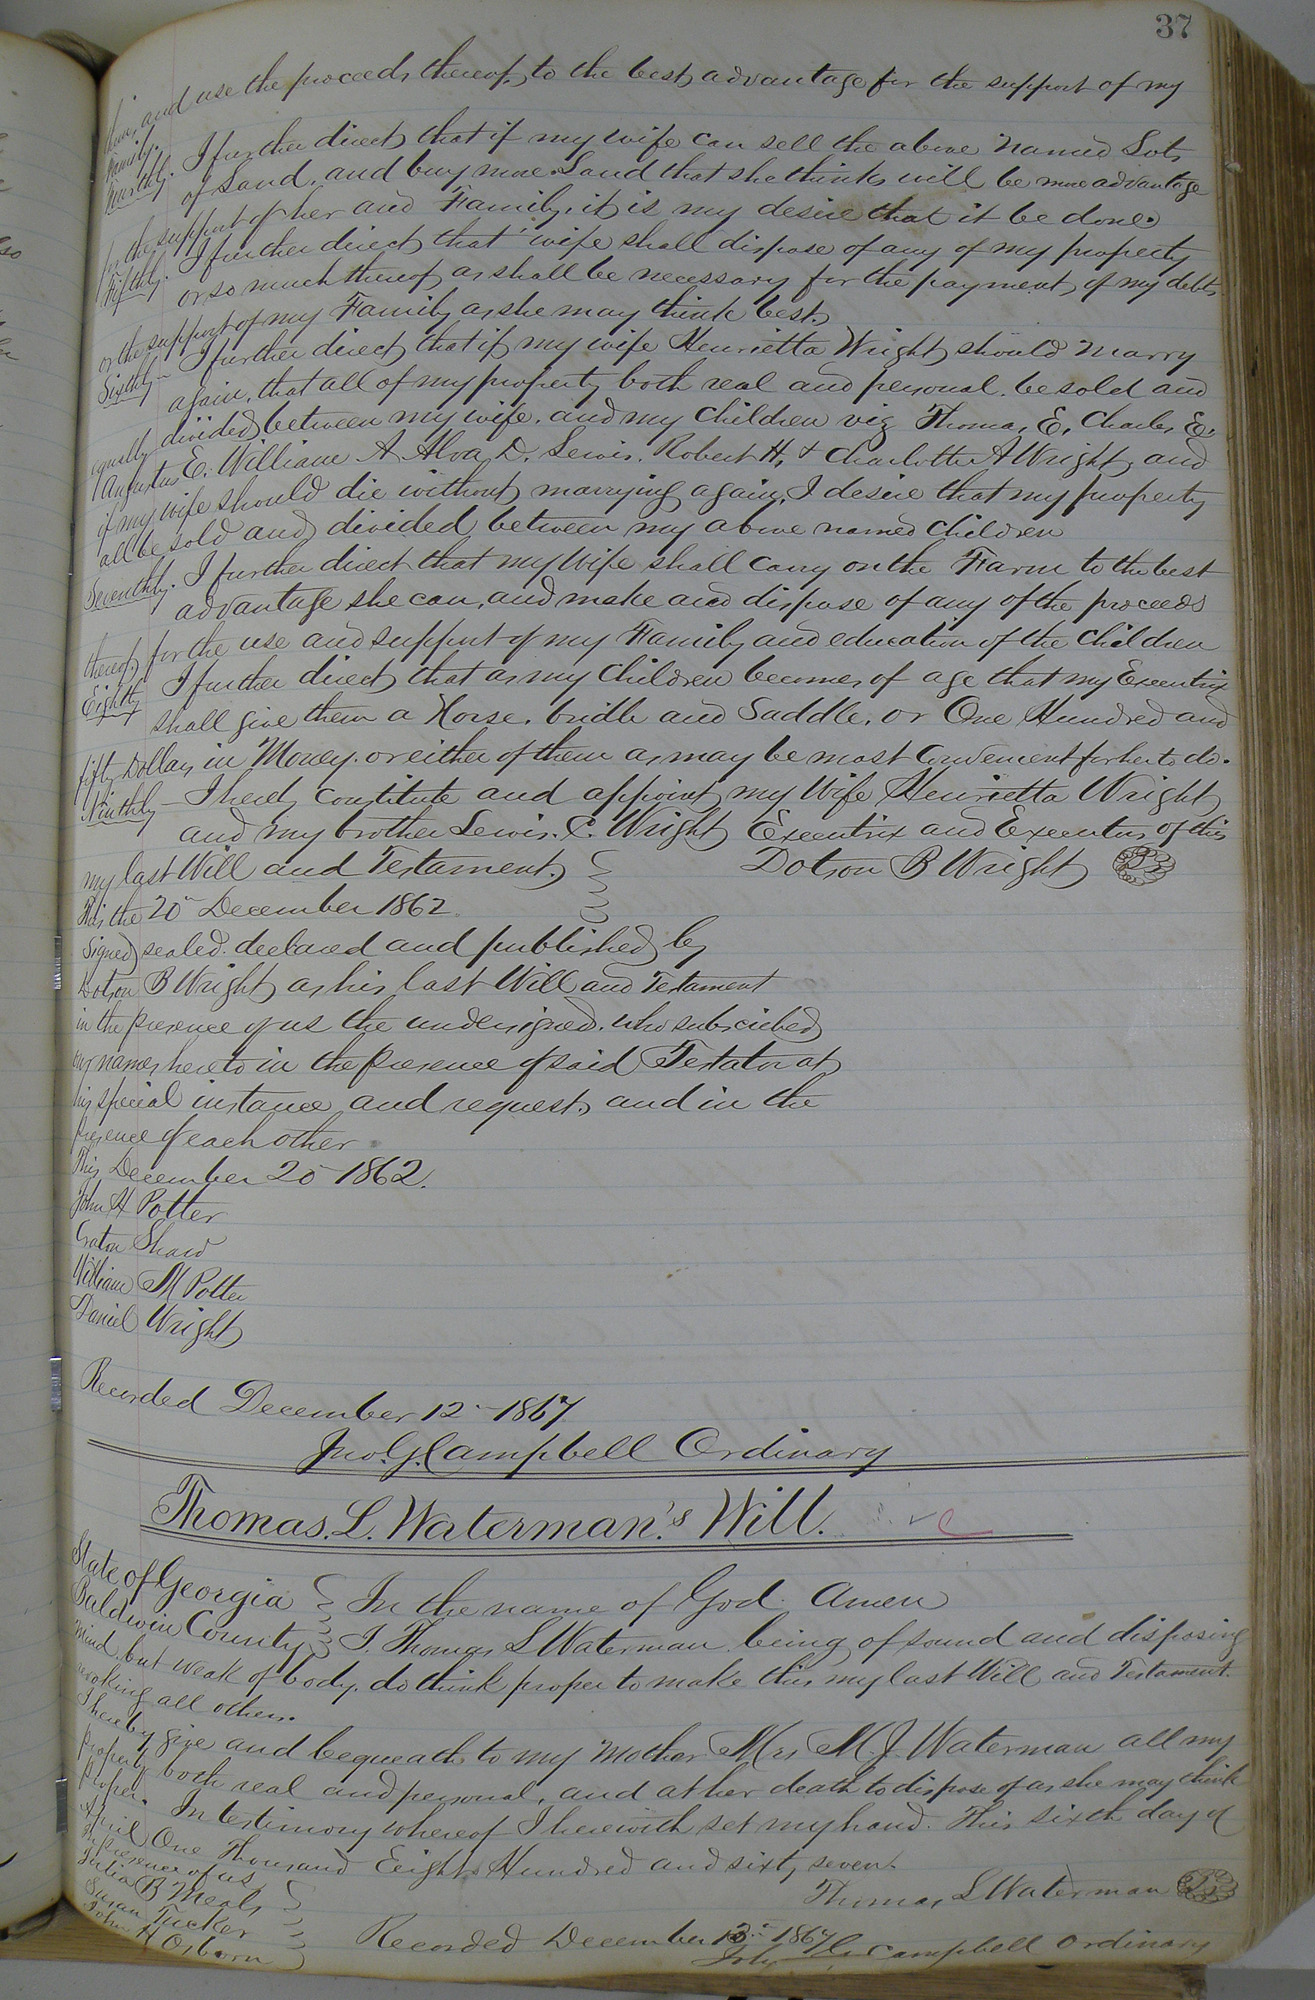 37
him, and use the proceeds thereof, to the best advantage for the support of my
Family.
Fourthly. I further direct that if my wife can sell the above named Lots
of Land, and buy more Land that she thinks will be more advantage
for the support of her and Family, it is my desire that it be done.
Fifthly. I further direct that wife shall dispose of any of my property
or so much thereof as shall be necessary for the payment of my debts
or the support of my Family as she may think best.
Sixthly - I further direct that if my wife Henrietta Wright should marry
again, that all of my property both real and personal. be sold and
equally divided between my wife, and my children viz Thomas E, Charles E.
Augustus E. William A Alva D. Lewis. Robert H, & Charlotte A Wright, and
if my wife should die without marrying again, I desire that my property
all be sold and divided between my above named children
Seventhly. I further direct that my wife shall carry on the Farm to the best
advantage she can, and make and dispose of any of the proceeds
thereof, for the use and support of my Family and education of the children
Eightly I further direct that as my children becomes of age that my Executrix
shall give them a Horse, bridle and Saddle, or One Hundred and
fifty Dollars in Money. or either of them as may be most convenient for her to do.
Ninthly - I hereby constitute and appoint my Wife Henrietta Wright
and my brother Lewis. C. Wright Executrix and Executor of this
my last Will and Testament. Dotson B Wright
This the 20" December 1862.
Signed sealed. declared and published by
Dotson B Wright as his last Will and Testament
in the presence of us the undersigned. who subscribed
our names hereto in the presence of said Testator at
his special instance and request, and in the
presence of each other
This December 20 - 1862.
John H Potter
Craton Shaw
William M Potter
Daniel Wright
Recorded December 12 - 1867
Jno. G. Campbell Ordinary
Thomas. L. Waterman's Will.
State of Georgia In the name of God. Amen
Baldwin County I. Thomas L Waterman. being of sound and disposing
mind, but weak of body. do think proper to make this my last Will and Testament.
revoking all others.
I hereby give and bequeath to my Mother Mrs M. J. Waterman all my
property both real and personal, and at her death to dispose of as she may think
proper. In testimony whereof I herewith set my hand. This sixth day of
April One Thousand Eight Hundred and sixty seven.
In presence of us Thomas L Waterman
Julia B Meals
Susan Tucker
John H Osborn Recorded December 13" 1867
Campbell Ordinary